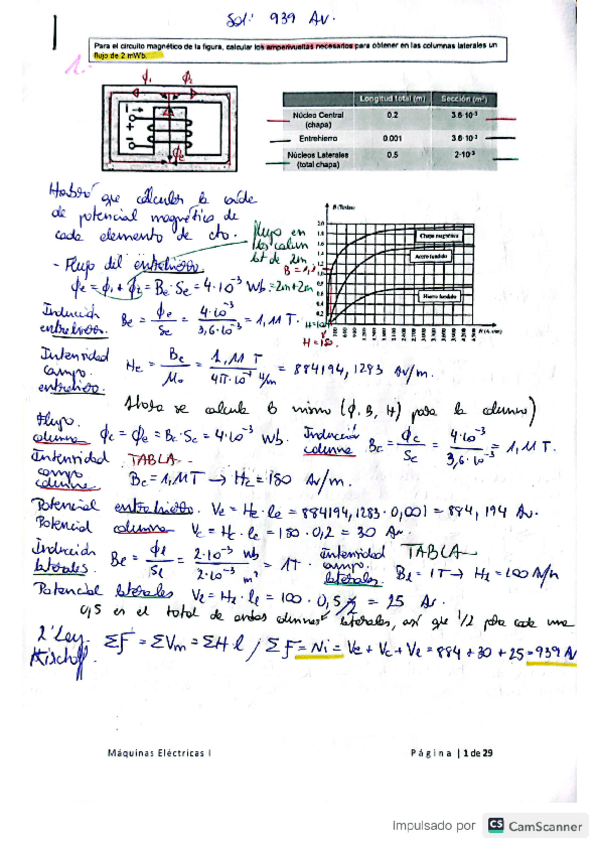 Sol: 939 Av.
Para el circuito magnético de la figura, calcular los amperivueltas necesarios para obtener en las columnas laterales un
flujo de 2 mWb.
1.
ϕ1 ϕ2
i
+
-
ϕe
Longitud total (m) Sección (m²)
Núcleo Central (chapa) 0.2 3.6·10-3
Entrehierro 0.001 3.6·10-3
Núcleos Laterales (total chapa) 0.5 2·10-3
Habrá que calcular la caída
de potencial magnético de
cada elemento de cto.
flujo en
las colum
lat de 2m
B (Teslas)
Chapa magnética
Acero fundido
Hierro fundido
H (Av/m)
H = 180
- Flujo del entrehierro
ϕe = ϕ1 + ϕ2 = Be · Se = 4·10⁻³ Wb = 2m+2m
Inducción entrehierro. Be = ϕe/Se = 4·10⁻³/3,6·10⁻³ = 1,11 T.
Intensidad campo entrehierro. He = Be/μ0 = 1,11 T/4π·10⁻⁷ = 884194,1283 Av/m.
Ahora se calcula lo mismo (ϕ, B, H) para la columna)
Flujo columna ϕc = ϕe = Bc · Sc = 4·10⁻³ Wb. Inducción columna Bc = ϕc/Sc = 4·10⁻³/3,6·10⁻³ = 1,11 T.
Intensidad campo columna TABLA
Bc = 1,11T → Hc = 180 Av/m.
Potencial entrehierro. Ve = He · le = 884194,1283 · 0,001 = 884,194 Av.
Potencial columna Vc = Hc · lc = 180 · 0,2 = 30 Av.
Inducción laterales. Bl = ϕl/Sl = 2·10⁻³ Wb/2·10⁻³ m² = 1T. Intensidad campo laterales TABLA Bl = 1T → Hl = 100 Av/m
Potencial laterales Vl = Hl · ll = 100 · 0,5/2 = 25 Av.
0,5 es el total de ambas columnas laterales, así que 1/2 para cada una
2ª Ley. Kischoff. ΣF = ΣVm = ΣH·l / ΣF = Ni = Ve + Vc + Vl = 884 + 30 + 25 = 939 Av
Máquinas Eléctricas I Página | 1 de 29
Impulsado por CS CamScanner